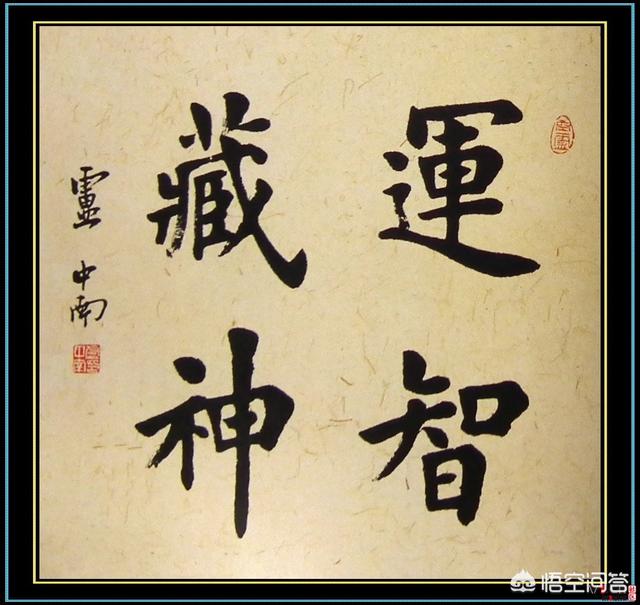 運智
藏神
盧中南
悟空问答